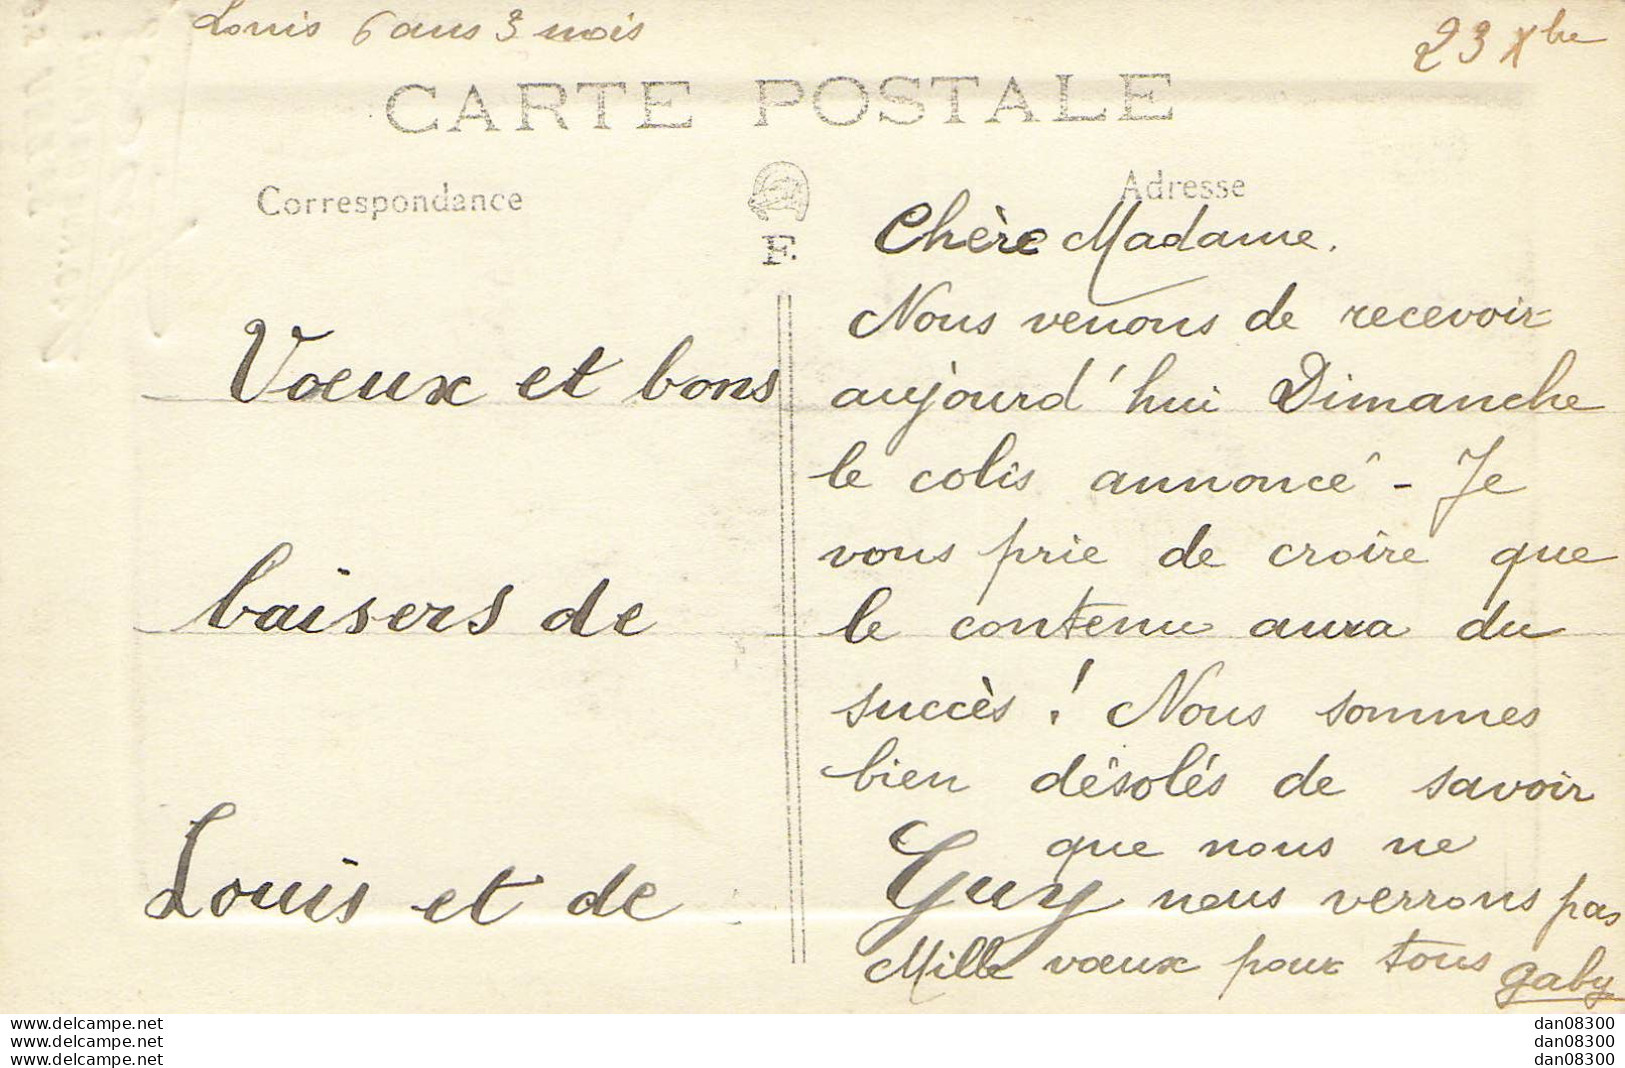 Louis 6 ans 3 mois
23 Xbre
CARTE POSTALE
Correspondance
Adresse
F.
Voeux et bons
baisers de
Louis et de
Guy
Chère Madame.
Nous venons de recevoir
aujourd'hui Dimanche
le colis annoncé - Je
vous prie de croire que
le contenu aura du
succès ! Nous sommes
bien désolés de savoir
que nous ne
nous verrons pas
Mille voeux pour tous gaby
www.delcampe.net
www.delcampe.net
www.delcampe.net
dan08300
dan08300
dan08300